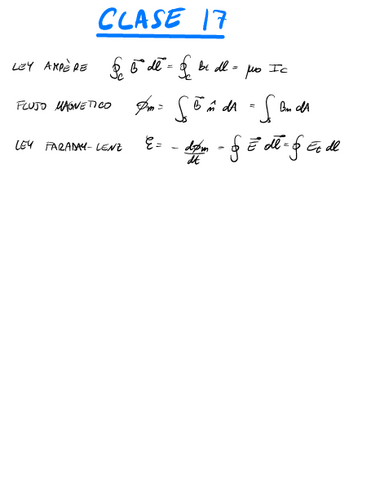 CLASE 17
LEY AMPÈRE ∮_C B⃗ dl⃗ = ∮_C Bt dl = μo I_C
FLUJO MAGNETICO ϕm = ∫_S B⃗ n̂ dA = ∫_S Bn dA
LEY FARADAY-LENZ ε = - dϕm/dt = ∮ E⃗ dl⃗ = ∮ Et dl